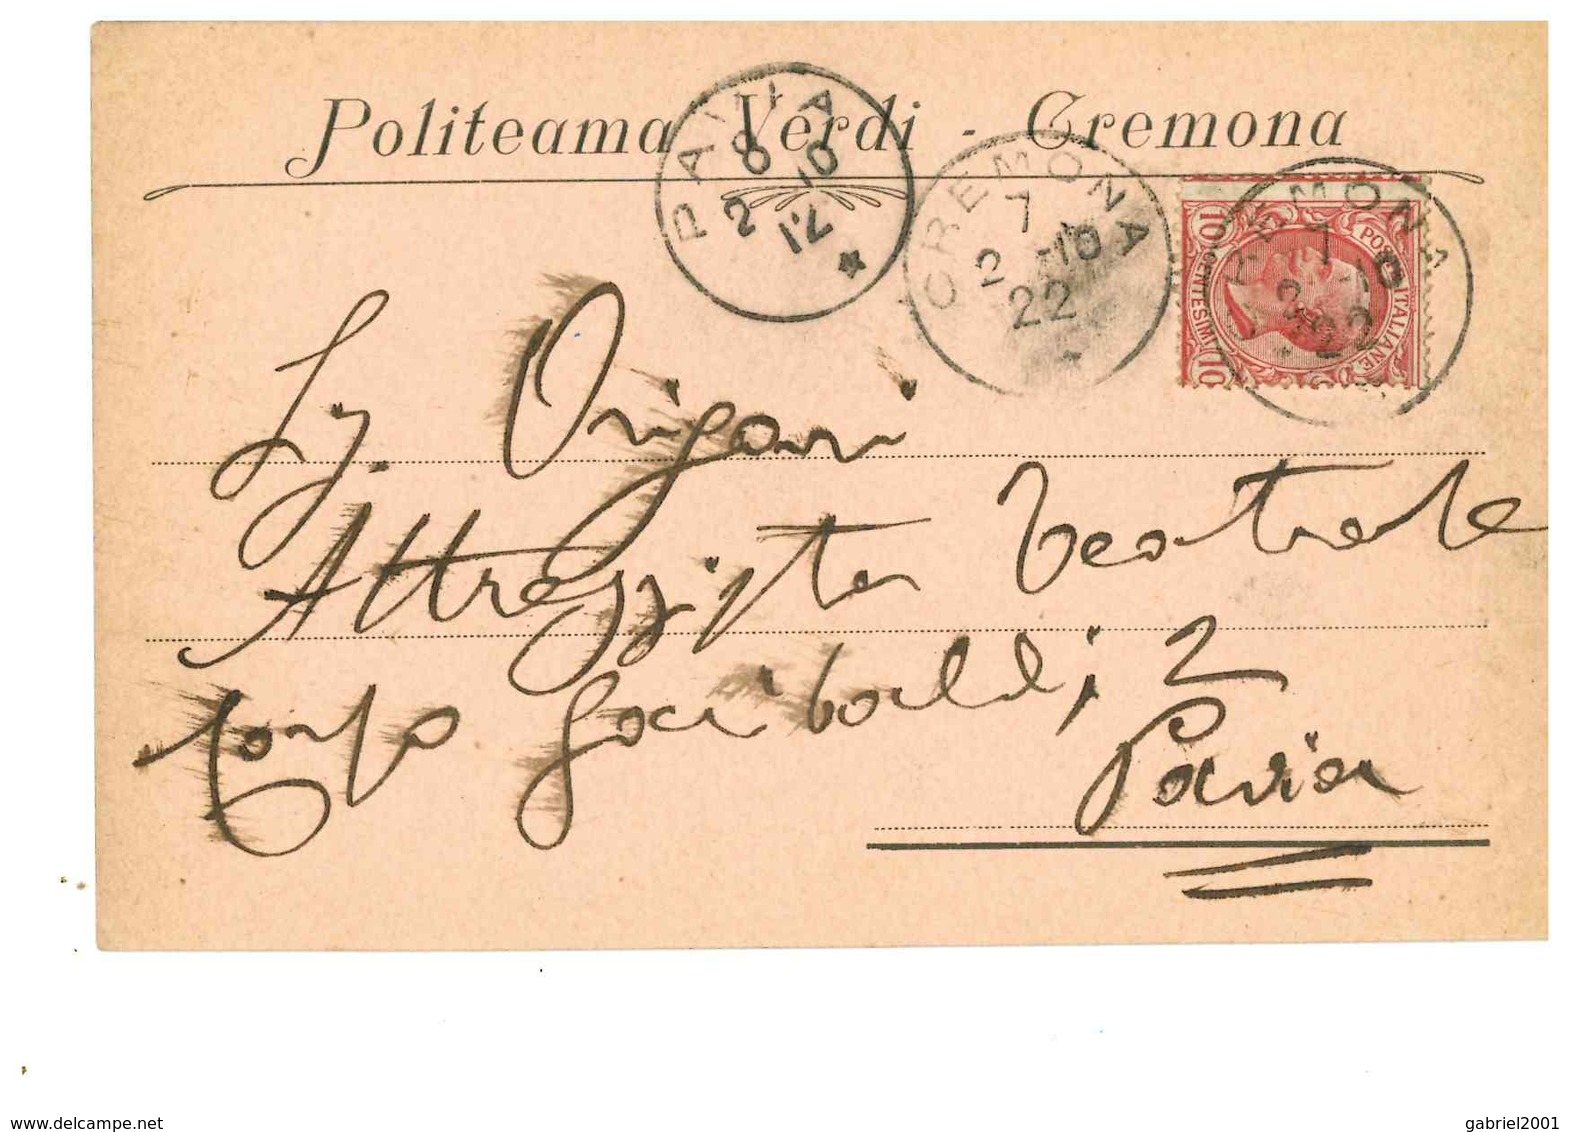 Politeama Verdi - Cremona
PAVIA
8
2 10
12
CREMONA
7
2 -10
22
CREMONA
7
2 -10
22
POSTE ITALIANE
10 CENTESIMI 10
Sig. Origoni
Attrezzista Teatrale
Corso Garibaldi, 2
Pavia
www.delcampe.net
gabriel2001